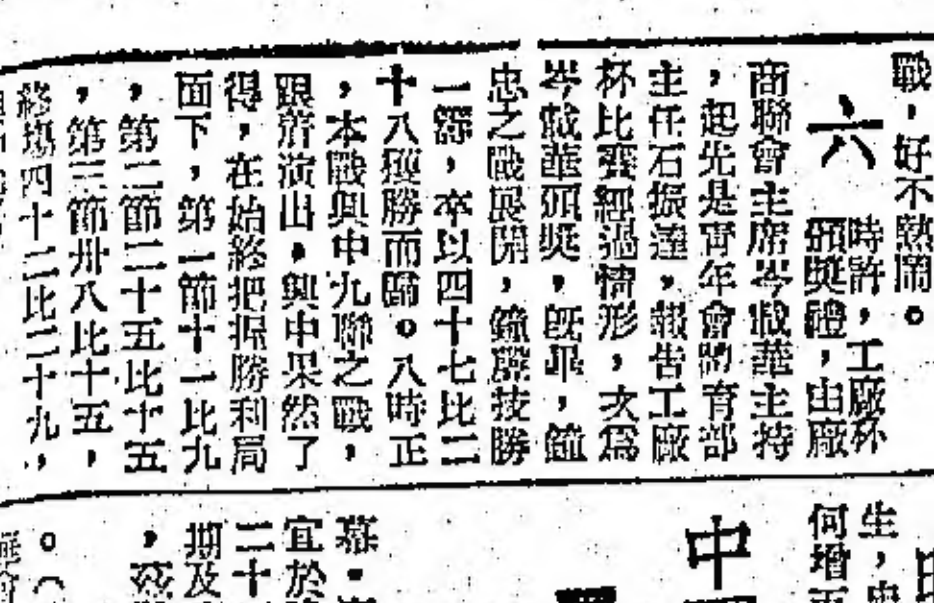 戰,好不熱鬧。
六時許,工廠杯
頒獎禮,由廠
商聯會主席岑載華主持
,起先是靑年會體育部
主任石振達,報吿工廠
杯比賽經過情形,次爲
岑載華頒獎,旣畢,鐘
忠之戰展開,鐘廨技勝
一籌,卒以四十七比二
十八獲勝而歸。八時正
,本戰與中九聯之戰,
跟着演出,興中果然了
得,在始終把握勝利局
面下,第一節十一比九
,第二節二十五比十五
,第三節卅八比十五,
終塲四十二比二十九,
生,忠
何增
中
幕,
宜於
二十
期及